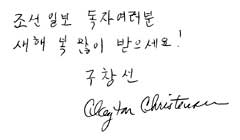 조선일보 독자여러분
새해 복 많이 받으세요!
구창선
Clayton Christensen